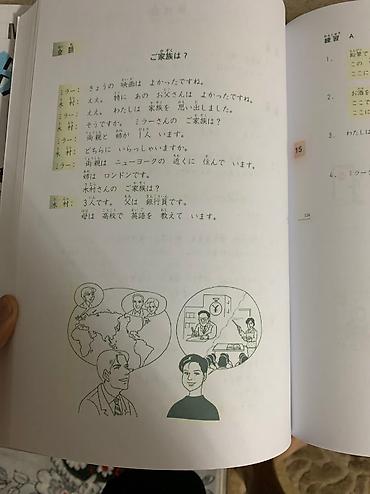 会話
ご家族は？
ミラー： きょうの 映画は よかったですね。
木村： ええ。 特に あの お父さんは よかったですね。
ミラー： ええ。 わたしは 家族を 思い出しました。
木村： そうですか。 ミラーさんの ご家族は？
ミラー： 両親と 姉が 1人 います。
木村： どちらに いらっしゃいますか。
ミラー： 両親は ニューヨークの 近くに 住んで います。
姉は ロンドンです。
木村さんの ご家族は？
木村： 3人です。 父は 銀行員です。
母は 高校で 英語を 教えて います。
練習 A
1. 鉛筆で
この
ここ
2. お酒を
ここで
ここで
3. わたしは
15
4. ミラー